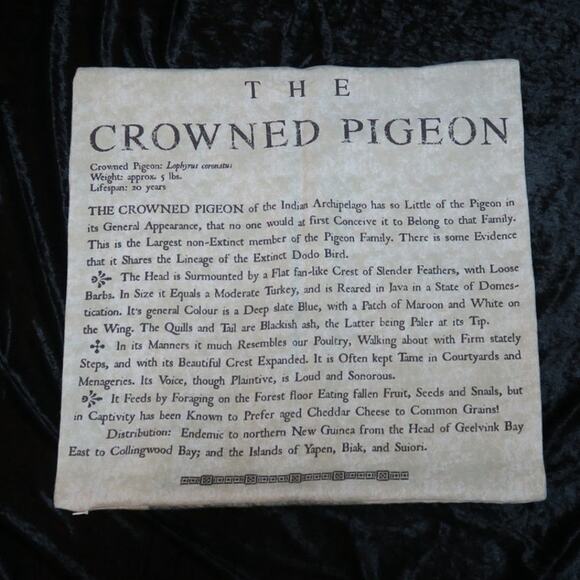 THE
CROWNED PIGEON
Crowned Pigeon: Lophyrus coronatus
Weight: approx. 5 lbs.
Lifespan: 20 years
THE CROWNED PIGEON of the Indian Archipelago has so Little of the Pigeon in
its General Appearance, that no one would at first Conceive it to Belong to that Family.
This is the Largest non-Extinct member of the Pigeon Family. There is some Evidence
that it Shares the Lineage of the Extinct Dodo Bird.
The Head is Surmounted by a Flat fan-like Crest of Slender Feathers, with Loose
Barbs. In Size it Equals a Moderate Turkey, and is Reared in Java in a State of Domes-
tication. It's general Colour is a Deep slate Blue, with a Patch of Maroon and White on
the Wing. The Quills and Tail are Blackish ash, the Latter being Paler at its Tip.
In its Manners it much Resembles our Poultry, Walking about with Firm stately
Steps, and with its Beautiful Crest Expanded. It is Often kept Tame in Courtyards and
Menageries. Its Voice, though Plaintive, is Loud and Sonorous.
It Feeds by Foraging on the Forest floor Eating fallen Fruit, Seeds and Snails, but
in Captivity has been Known to Prefer aged Cheddar Cheese to Common Grains!
Distribution: Endemic to northern New Guinea from the Head of Geelvink Bay
East to Collingwood Bay; and the Islands of Yapen, Biak, and Suiori.